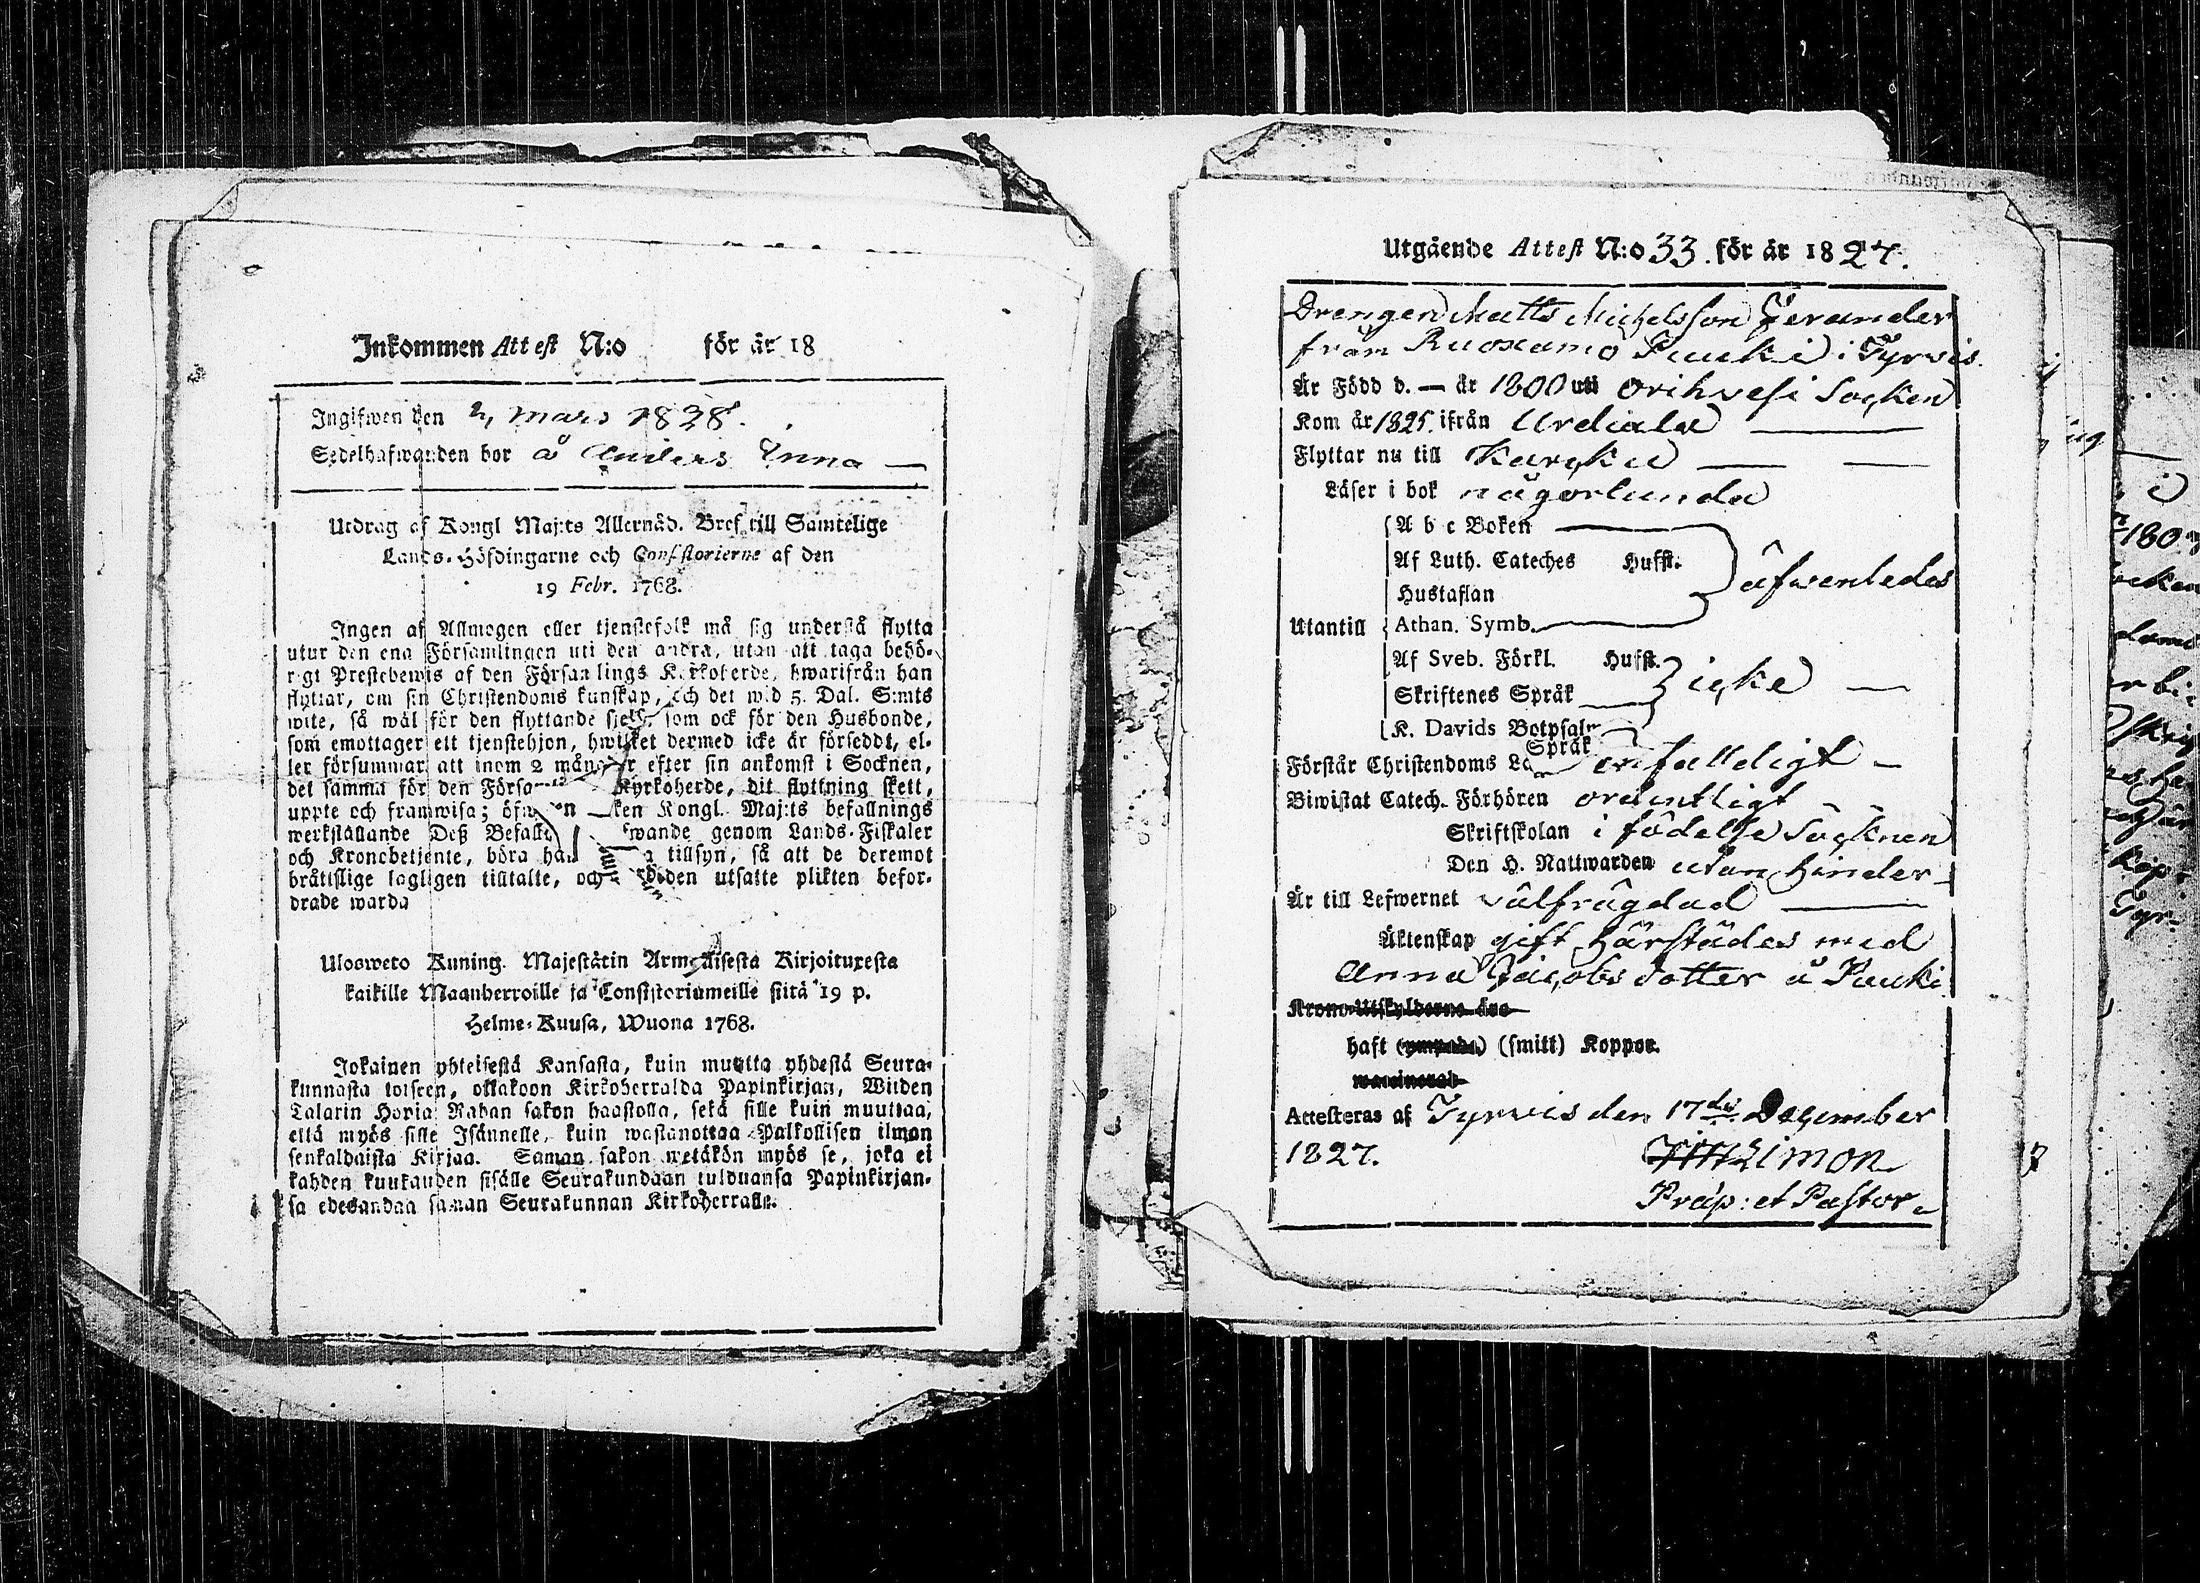 Inkommen Attest N:o för år 18
Ingifwen den 2 Mars 1828.
Sedelhafwanden bor å Anders Inna —
Utdrag af Kongl Maj:ts Allernåd. Bref till Samtelige
Lands-Höfdingarne och Consistorierne af den
19 Febr. 1768.
Ingen af Allmogen eller tjenstefolk må sig understå flytta
utur den ena Församlingen uti den andra, utan att taga behö-
rigt Prestebewis af den Församlings Kyrkoherde, hwarifrån han
flyttar, om sin Christendoms kunskap, och det wid 5. Dal. S:mts
wite, så wäl för den flyttande sjelf, som ock för den Husbonde,
som emottager ett tjenstehjon, hwilket dermed icke är försedt, el-
ler försummar att inom 2 månader efter sin ankomst i Socknen,
det samma för den Församl Kyrkoherde, dit flyttning skett,
uppte och framwisa; öfw en ken Kongl. Maj:ts befallnings
werkställande Deß Befall wande genom Lands-Fiskaler
och Kronobetjente, böra ha a tillsyn, så att de deremot
bråttslige lagligen tilltalte, och den utsatte plikten befor-
drade warda
Ulosweto Kuning. Majestätin Armollisesta Kirjoituxesta
kaikille Maanherroille ja Consistoriumeille siitä 19 p.
Helme-Kuusa, Wuona 1768.
Jokainen yhteisestä Kansasta, kuin muutta yhdestä Seura-
kunnasta toiseen, ottakoon Kirkoherralda Papinkirjan, Wiiden
Talarin Hopia Rahan sakon haastolla, sekä sille kuin muuttaa,
että myös sille Isännelle, kuin wastanottaa Palkollisen ilman
senkaldaista Kirjaa. Saman sakon wetäkön myös se, joka ei
kahden kuukauden sisälle Seurakundaan tulduansa Papinkirjan-
sa edesandaa saman Seurakunnan Kirkoherralle.
Utgående Attest N:o 33. för år 1827.
Drengen Matts Michelsson Feränder
från Ruoxamo Pauki i Tyrwis.
Är Född d. — år 1800 uti Orihvesi Socken
Kom år 1825. ifrån Urdiala —
Flyttar nu till Karcku — —
Läser i bok någorlunda
A b c Boken —
Af Luth. Cateches Hufst.
Hustaflan
äfwenledes
Utantill Athan. Symb.
Af Sveb. Förkl. Hufst.
Skriftenes Språk icke —
K. Davids Botpsalm
Språk
Förstår Christendoms Lä enfalldigt —
Biwistat Catech. Förhören ordentligt
Skriftskolan i födelse Socknen
Den H. Nattwarden utan hinder
Är till Lefwernet välfrägdad —
Äktenskap gift härstädes med
Anna Jacobs dotter å Pauki
Krono-Utskylderne äro
haft (ympade) (smitt) Koppor.
waccinerad
Attesteras af Tyrwis den 17de December
1827. Limon
Præp: et Pastor